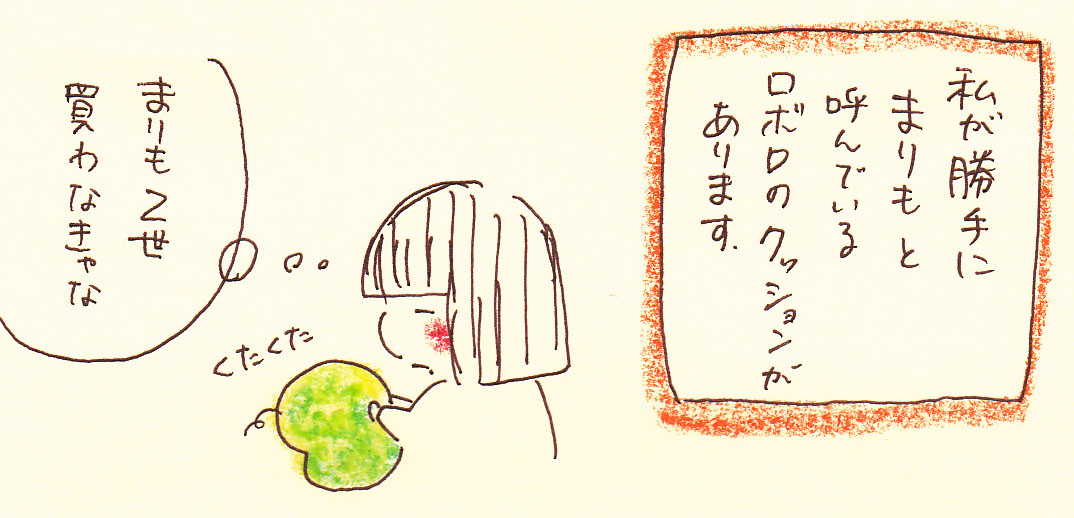 私が勝手に
まりもと
呼んでいる
ロボロのクッションが
あります.
まりも2世
買わなきゃな
くたくた